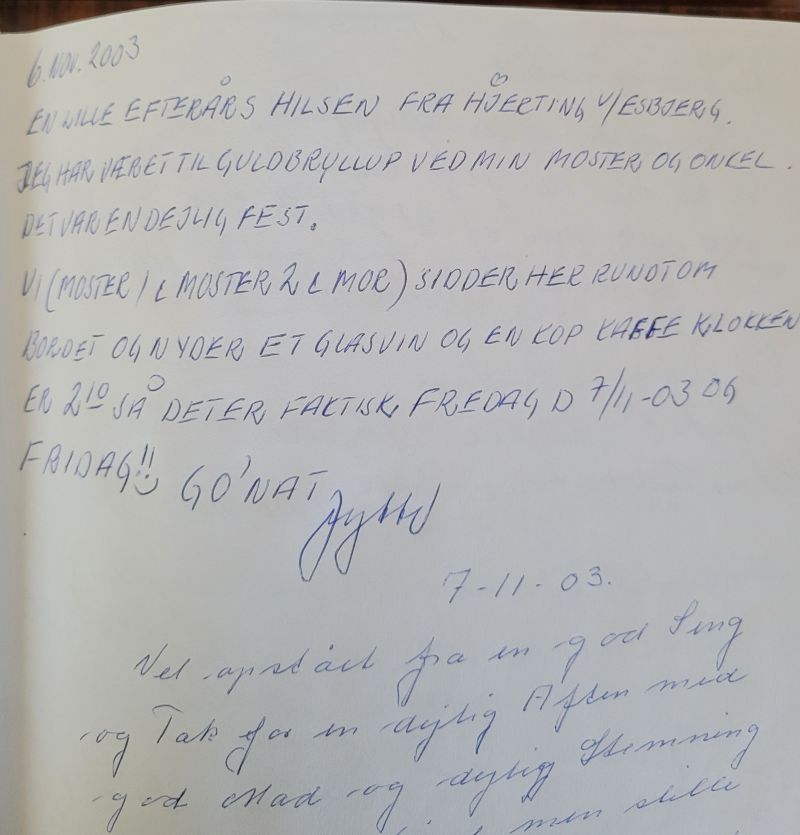 6. NOV. 2003
EN LILLE EFTERÅRS HILSEN FRA HJERTING V/ESBJERG.
JEG HAR VÆRET TIL GULDBRYLLUP VED MIN MOSTER OG ONKEL.
DET VAR EN DEJLIG FEST.
VI (MOSTER 1 & MOSTER 2 & MOR) SIDDER HER RUNDT OM
BORDET OG NYDER ET GLAS VIN OG EN KOP KAFFE KLOKKEN
ER 2¹⁰ SÅ DET ER FAKTISK FREDAG D 7/11-03 OG
FRIDAG!! GO'NAT
Jytte
7-11-03.
Vel opstået fra en god Seng
og Tak for en dejlig Aften med
god Mad og dejlig Stemning
men stille